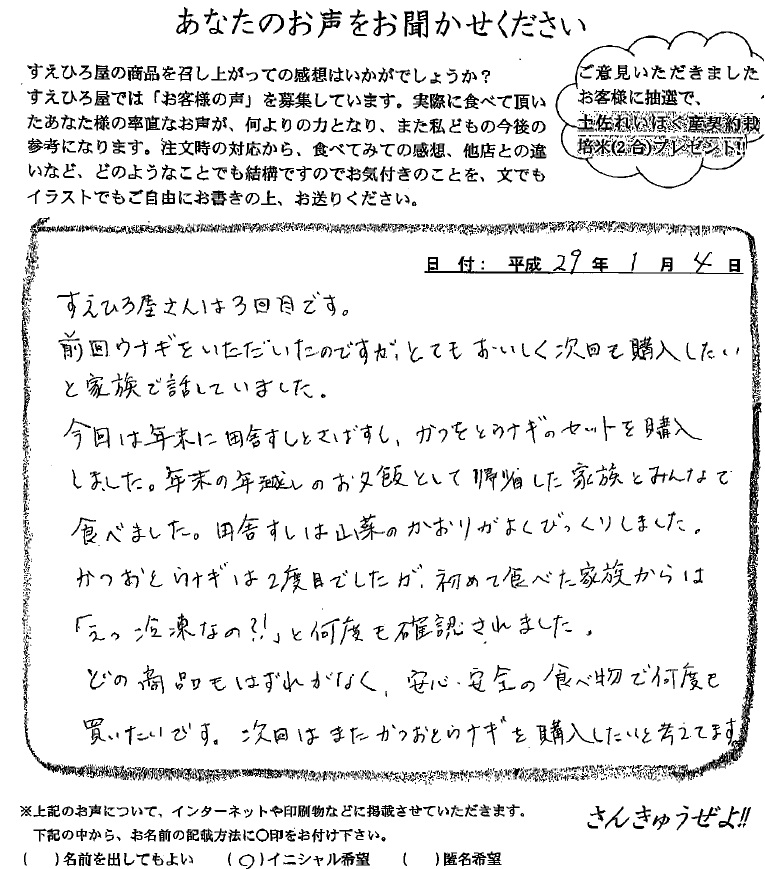 あなたのお声をお聞かせください
すえひろ屋の商品を召し上がっての感想はいかがでしょうか？
すえひろ屋では「お客様の声」を募集しています。実際に食べて頂い
たあなた様の率直なお声が、何よりの力となり、また私どもの今後の
参考になります。注文時の対応から、食べてみての感想、他店との違
いなど、どのようなことでも結構ですのでお気付きのことを、文でも
イラストでもご自由にお書きの上、お送りください。
ご意見いただきました
お客様に抽選で、
土佐れいほく産契約栽
培米(2合)プレゼント!!
日　付：　平成 29 年 1 月 4 日
すえひろ屋さんは3回目です。
前回ウナギをいただいたのですが、とてもおいしく次回も購入したい
と家族で話していました。
今回は年末に田舎すしとさばすし、かつをとウナギのセットを購入
しました。年末の年越しのお夕飯として帰省した家族とみんなで
食べました。田舎すしは山菜のかおりがよくびっくりしました。
かつおとウナギは2度目でしたが、初めて食べた家族からは
「えっ冷凍なの?!」と何度も確認されました。
どの商品もはずれがなく、安心・安全の食べ物で何度も
買いたいです。次回はまたかつおとウナギを購入したいと考えてます
※上記のお声について、インターネットや印刷物などに掲載させていただきます。
下記の中から、お名前の記載方法に○印をお付け下さい。
(　)名前を出してもよい　(○)イニシャル希望　(　)匿名希望
さんきゅうぜよ!!